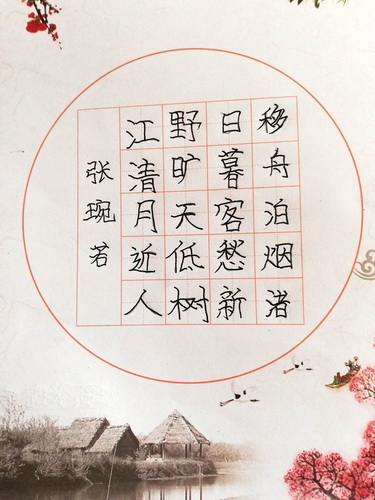 移舟泊烟渚
日暮客愁新
野旷天低树
江清月近人
张琬若